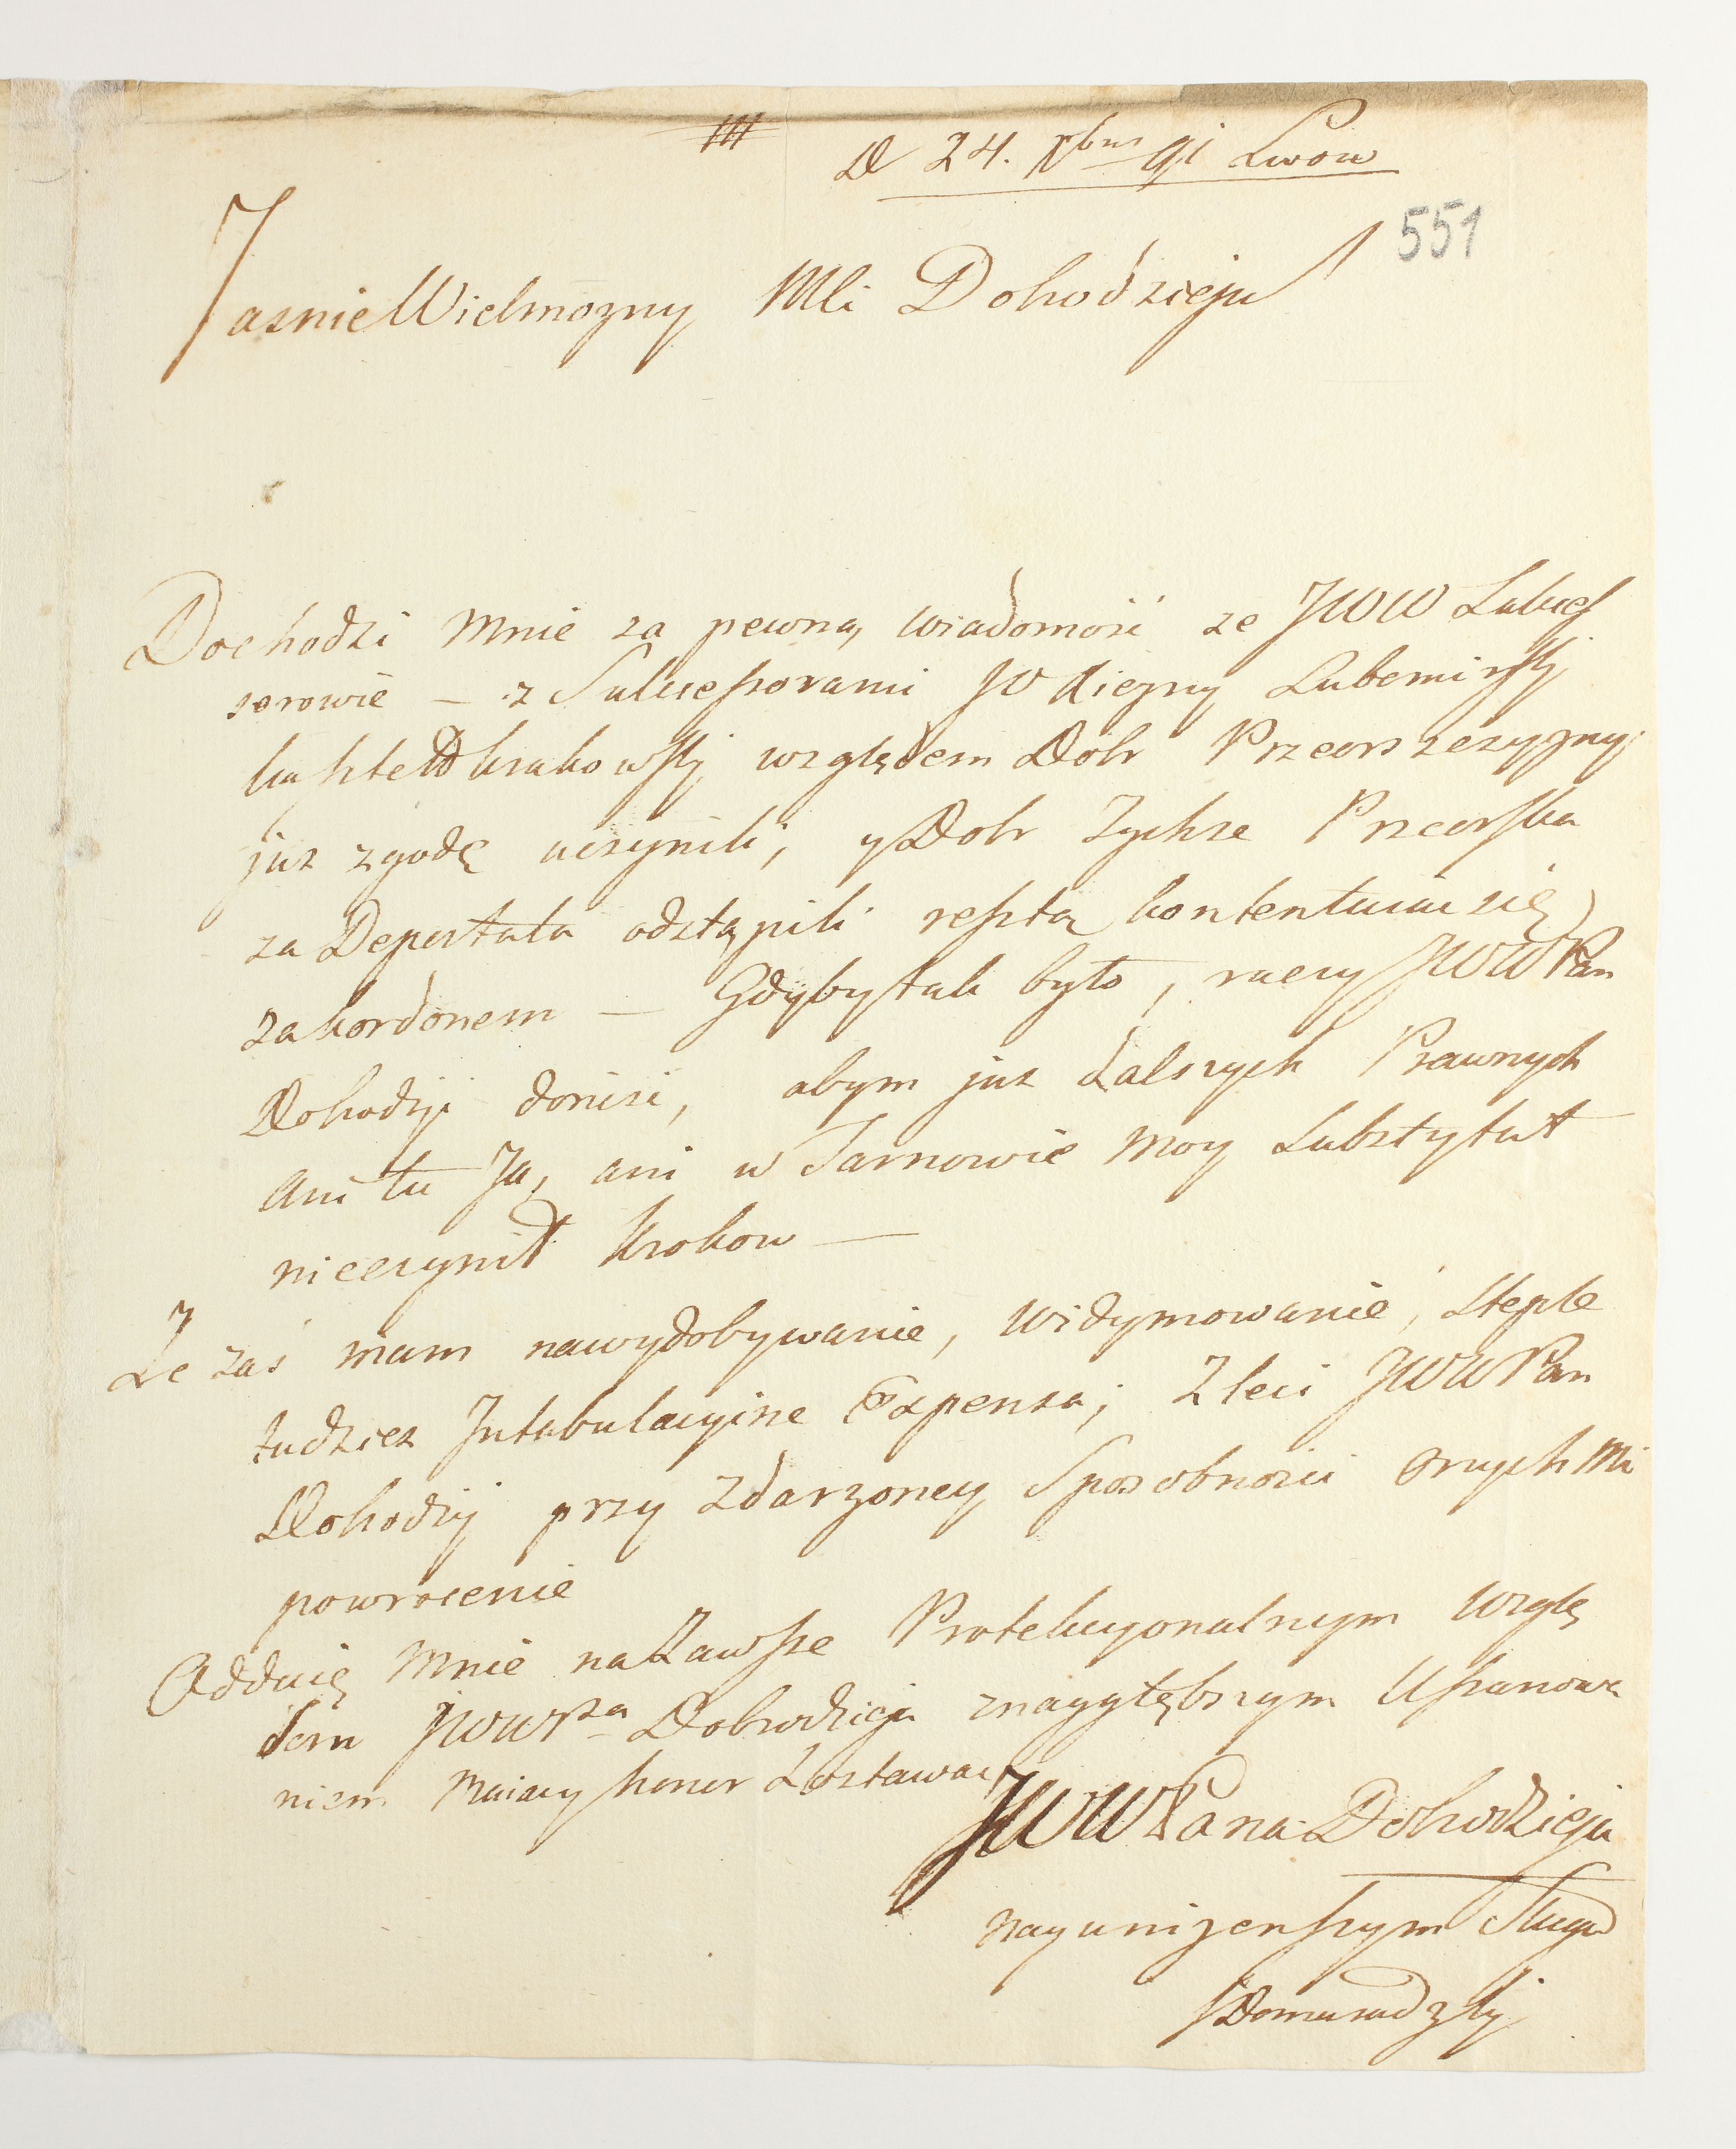 D 24. Xbris 91 Lwow
551
JasnieWielmozny Mci Dobodzieju
Dochodzi Mnie za pewną wiadomość ze JWW
serowie – z Sukcessorami JO Xiężny Lubomirskj
krakowskj względem Dobr
juz zgodę uczynili, y Dobr Tychze
za odstąpili resztą kontentuiąc się
zakordonem – Gdyby tak było, raczy JWW Pan
Dobodzj donieść, abym juz dalszych Prawnych
ani tu Ja, ani w Tarnowie moy Substytut
nieczynił krokow –
Ze zaś mam nawydobywanie, Widymowanie, Steple
tudziez Intabulacyine Expensa; Zleci JWW Pan
Dobodzj przy zdarzoney Sposobnosci onych mi
powrocenie
Oddaię Mnie naZawsze Protekcyonalnym wzglę
dom JWWPna Dobrodzieja znaygłębszym Uszanowa
niem Maiący honor Zostawać
JWWPana Dobodzieja
nayunizenszym Sługą
Domaradzkj